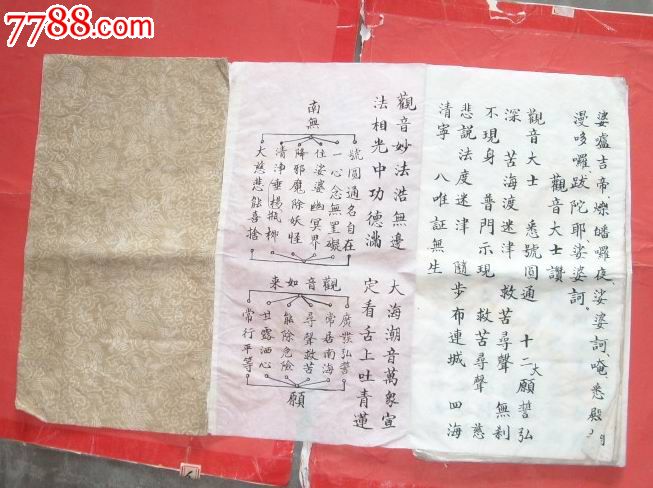 7788.com
婆盧吉帝爍皤囉夜娑婆訶唵悉殿
漫哆囉跋陀耶娑婆訶
觀音大士讚
觀音大士 悉號圓通 十二大願誓弘
深 苦海渡迷津 救苦尋聲 無刹
不現身 普門示現 救苦尋聲 慈
悲說法度迷津 隨步布連城 四海
清寧 八唯証無生
觀音妙法浩無邊
法相光中功德滿
大海潮音萬象宣
定看舌上吐青蓮
南無
號圓通名自在
一心念無罣礙
住娑婆幽冥界
降邪魔除妖怪
清淨垂楊瓶柳
大慈悲能喜捨
觀音如來
廣發弘誓
常居南海
尋聲救苦
能除危險
甘露洒心
常行平等
願